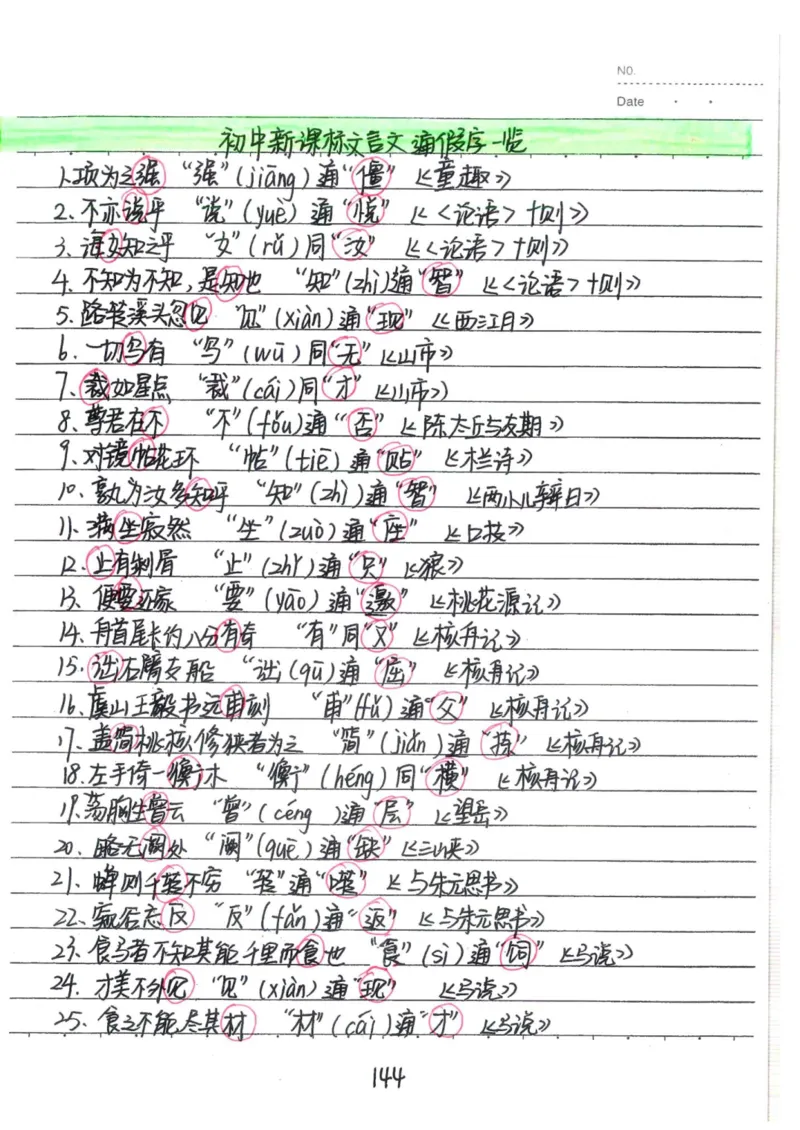 NO.
Date
初中新课标文言文通假字一览
1、项为之强 “强”(jiāng)通“僵” 《童趣》
2、不亦说乎 “说”(yuè)通“悦” 《〈论语〉十则》
3、诲女知之乎 “女”(rǔ)同“汝” 《〈论语〉十则》
4、不知为不知，是知也 “知”(zhì)通“智” 《〈论语〉十则》
5、路转溪头忽见 “见”(xiàn)通“现” 《西江月》
6、一切乌有 “乌”(wū)同“无” 《山市》
7、裁如星点 “裁”(cái)同“才” 《山市》
8、尊君在不 “不”(fǒu)通“否” 《陈太丘与友期》
9、对镜帖花环 “帖”(tiē)通“贴” 《木兰诗》
10、孰为汝多知乎 “知”(zhì)通“智” 《两小儿辩日》
11、满坐寂然 “坐”(zuò)通“座” 《口技》
12、止有剩骨 “止”(zhǐ)通“只” 《狼》
13、便要还家 “要”(yāo)通“邀” 《桃花源记》
14、舟首尾长约八分有奇 “有”同“又” 《核舟记》
15、诎右臂支船 “诎”(qū)通“屈” 《核舟记》
16、虞山王毅书远甫刻 “甫”(fǔ)通“父” 《核舟记》
17、盖简桃核修狭者为之 “简”(jiǎn)通“拣” 《核舟记》
18、左手倚一衡木 “衡”(héng)同“横” 《核舟记》
19、荡胸生曾云 “曾”(céng )通“层” 《望岳》
20、略无阙处 “阙”(quē)通“缺” 《三峡》
21、蝉则千转不穷 “转”通“啭” 《与朱元思书》
22、窥谷忘反 “反”(fǎn)通“返” 《与朱元思书》
23、食马者不知其能千里而食也 “食”(sì)通“饲” 《马说》
24、才美不外见 “见”(xiàn)通“现” 《马说》
25、食之不能尽其材 “材”(cái)通“才” 《马说》
144